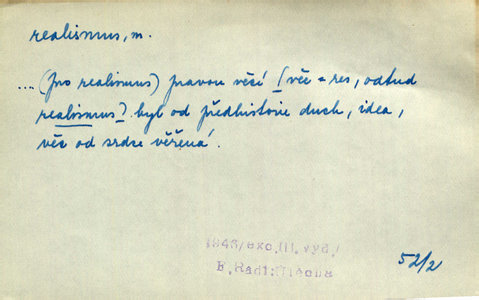 realismus, m.
... (pro realismus) pravou věcí [věc = res, odtud
realismus] byl od předhistorie duch, idea,
věc od srdce věřená.
1948/exc.III.vyd./
E.Rádl: Útěcha
52/2